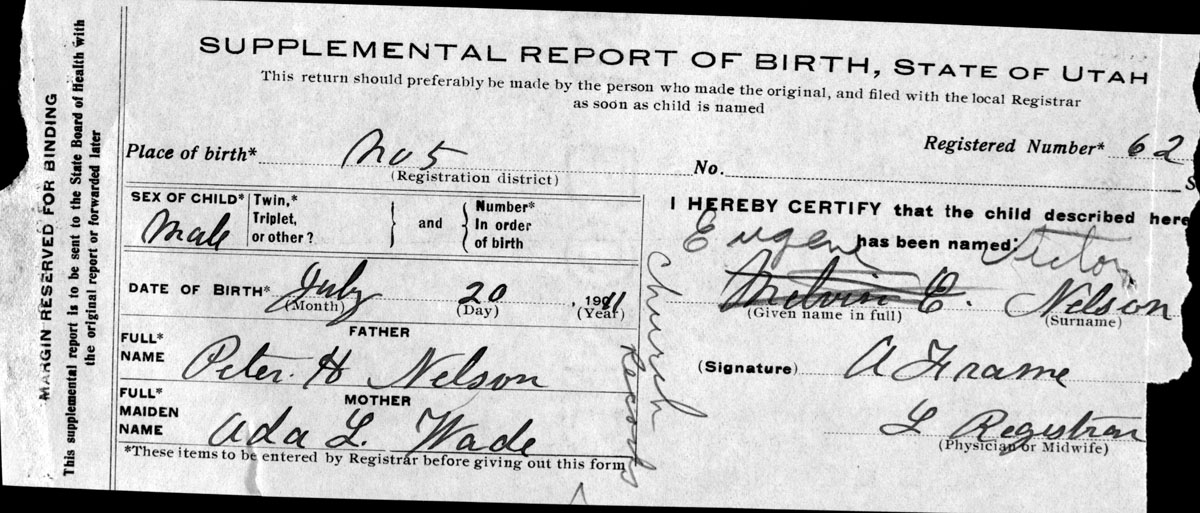 SUPPLEMENTAL REPORT OF BIRTH, STATE OF UTAH
This return should preferably be made by the person who made the original, and filed with the local Registrar
as soon as child is named
MARGIN RESERVED FOR BINDING
This supplemental report is to be sent to the State Board of Health with
the original report or forwarded later
Registered Number* 62
Place of birth* No 5 No. S
(Registration district)
SEX OF CHILD* Male
Twin,* Triplet, or other? } and { Number* In order of birth
DATE OF BIRTH* July 20, 1911
(Month) (Day) (Year)
FATHER
FULL* NAME Peter H Nelson
MOTHER
FULL* MAIDEN NAME Ada L. Wade
*These items to be entered by Registrar before giving out this form
Church Records
I HEREBY CERTIFY that the child described here
Eugene has been named: Victor
Melvin E. Nelson
(Given name in full) (Surname)
(Signature) A Frame
L Registrar
(Physician or Midwife)